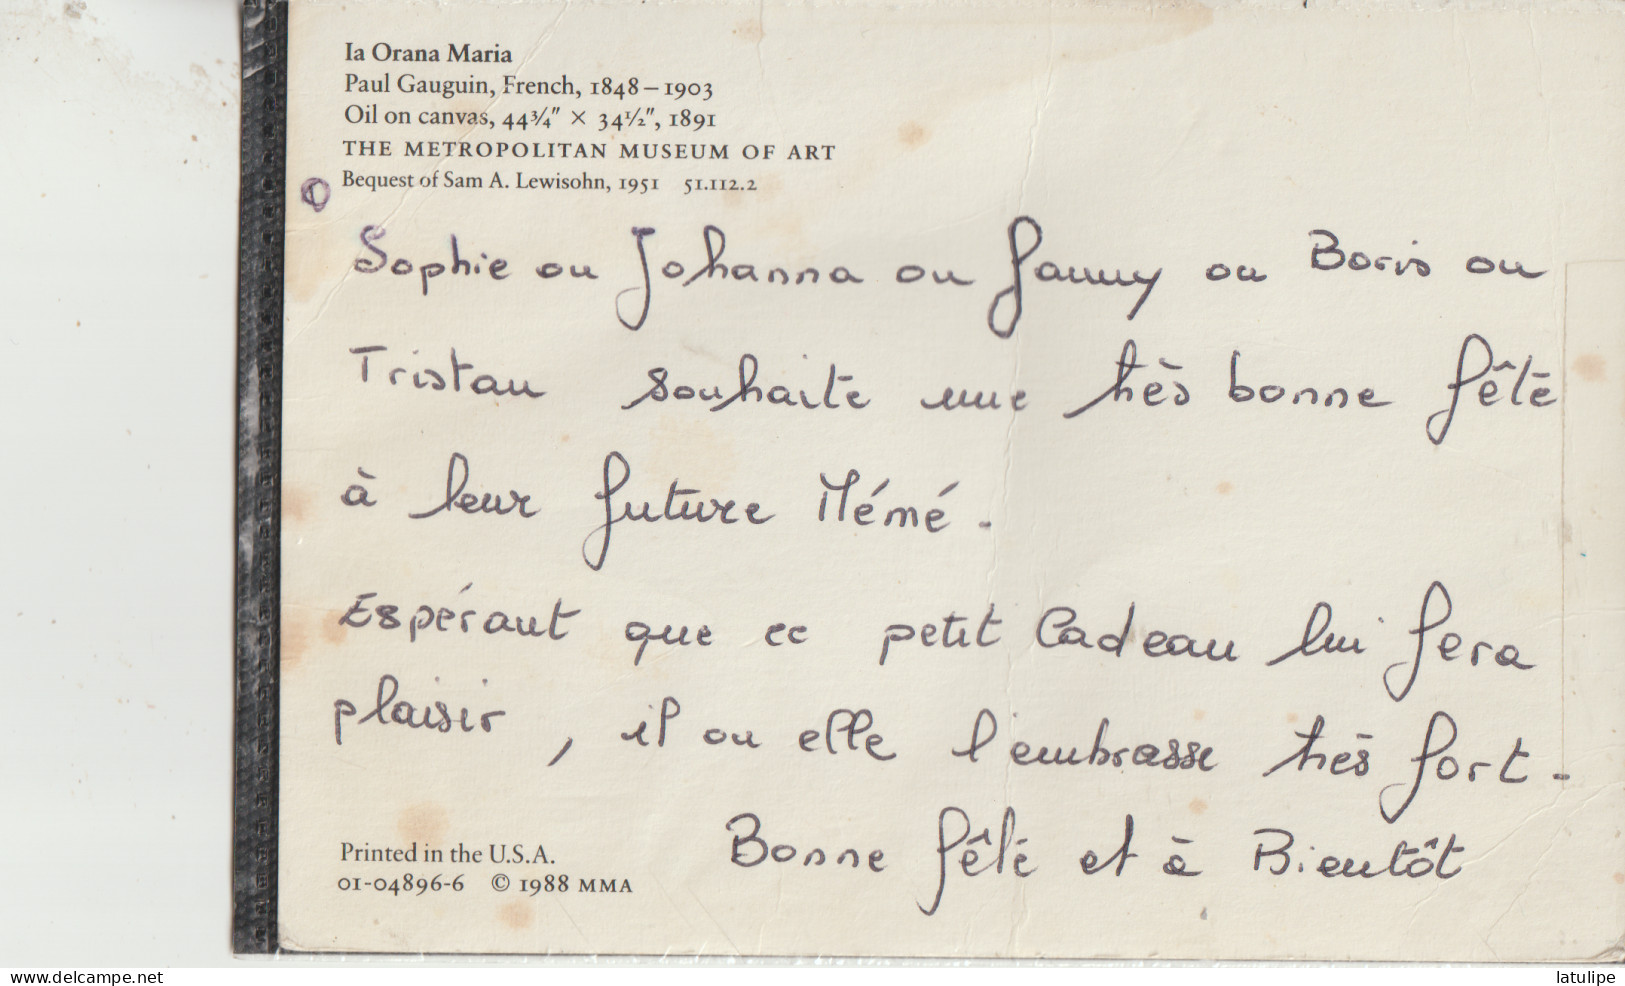 Ia Orana Maria
Paul Gauguin, French, 1848–1903
Oil on canvas, 44¾" × 34½", 1891
THE METROPOLITAN MUSEUM OF ART
Bequest of Sam A. Lewisohn, 1951 51.112.2
Sophie ou Johanna ou Fanny ou Boris ou
Tristan souhaite une très bonne fête
à leur future Mémé.
Espérant que ce petit Cadeau lui fera
plaisir, il ou elle l'embrasse très fort.
Bonne fête et à Bientôt
Printed in the U.S.A.
01-04896-6 © 1988 MMA
www.delcampe.net
latulipe